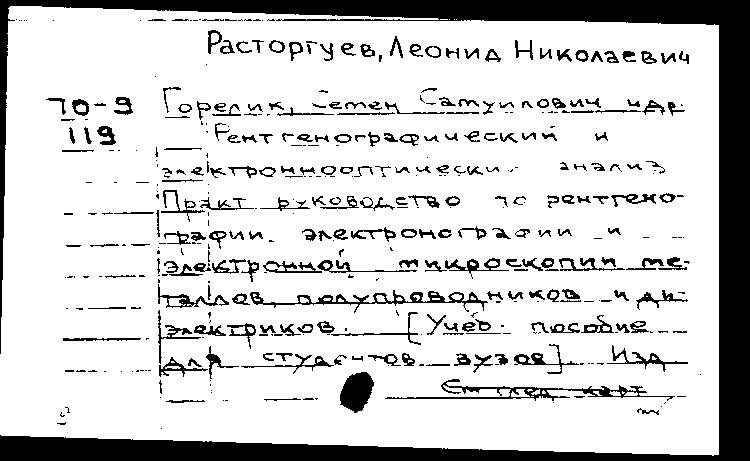 Расторгуев, Леонид Николаевич
70-9 Горелик, Семен Самуилович и др.
119 Рентгенографический и
электроннооптический анализ
Практ руководство по рентгено-
графии, электронографии и
электронной микроскопии ме-
таллов, полупроводников и ди-
электриков. [Учеб. пособие
для студентов вузов]. Изд
См след карт